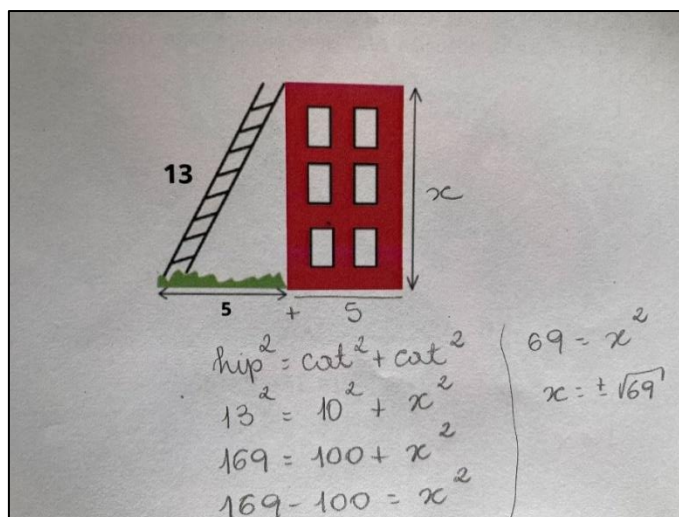 13
x
5 + 5
hip² = cat² + cat²
13² = 10² + x²
169 = 100 + x²
169 - 100 = x²
69 = x²
x = ± √69